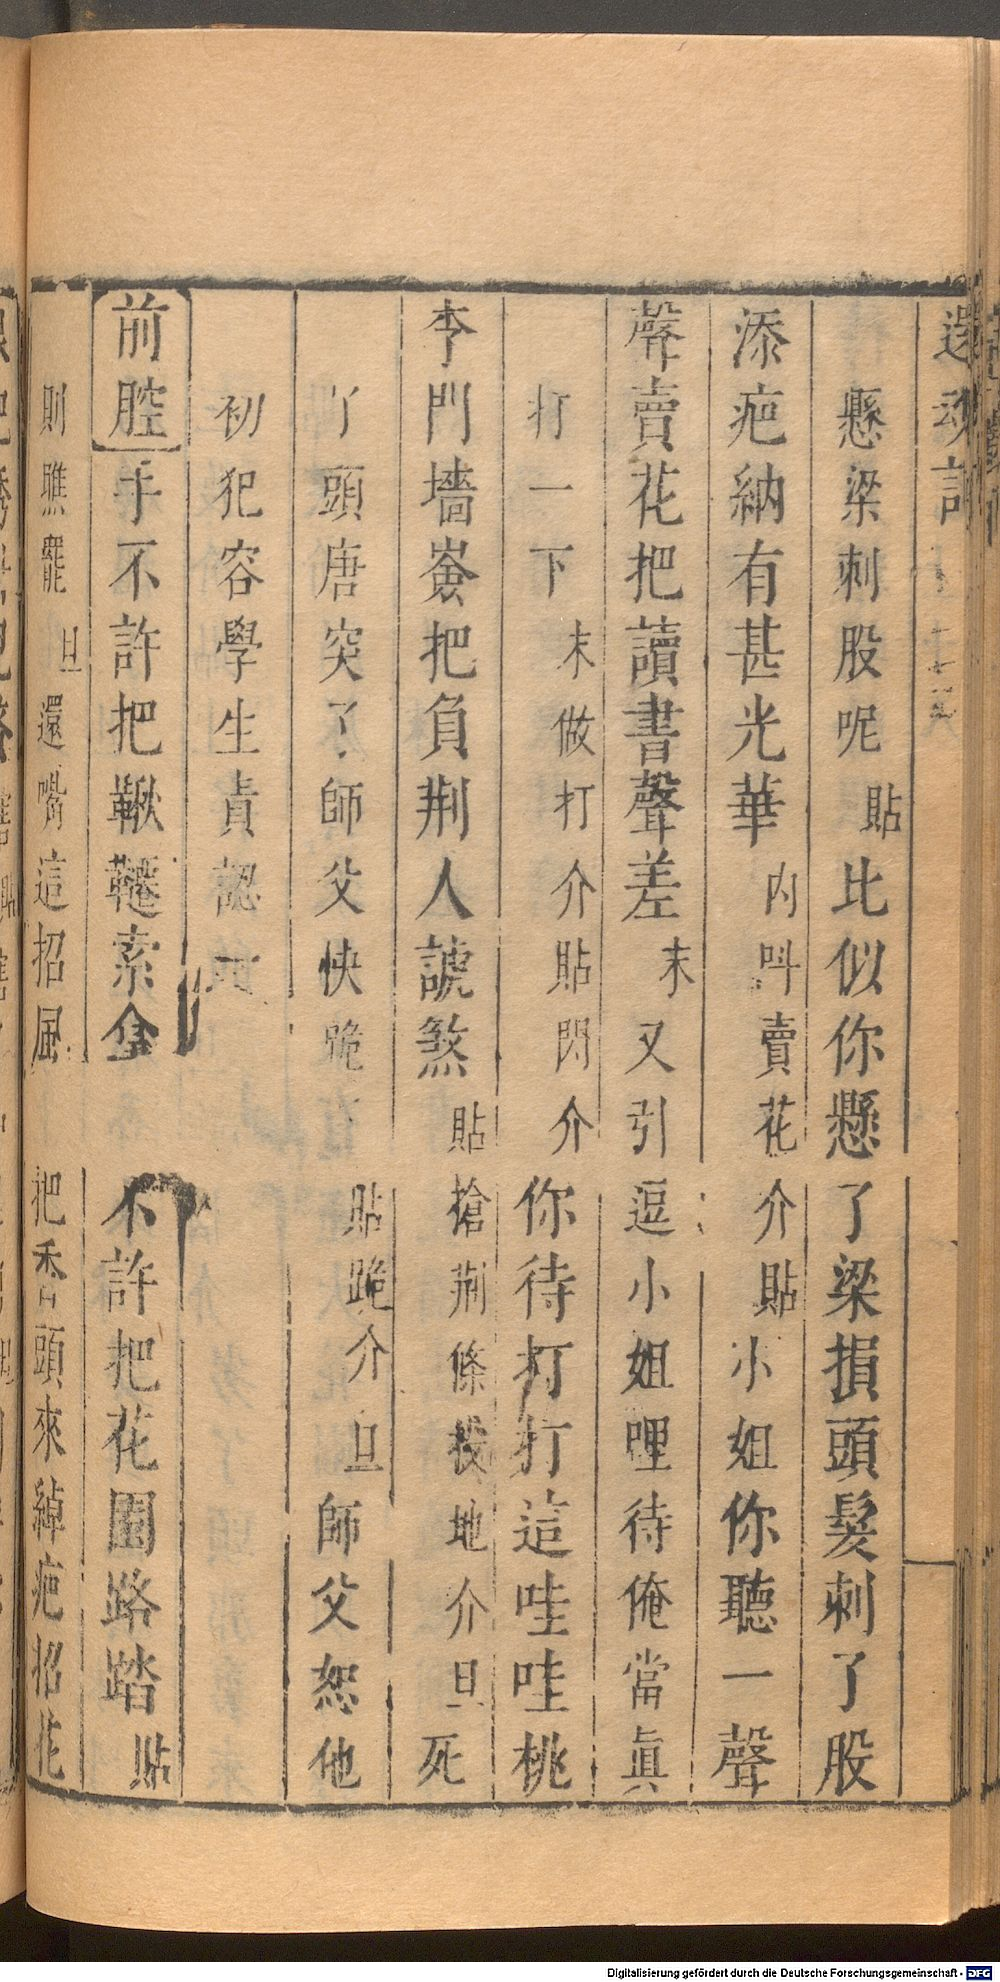 還魂記
懸梁刺股呢貼比似你懸了梁損頭髮刺了股
添疤納有甚光華內叫賣花介貼小姐你聽一聲
聲賣花把讀書聲差末又引逗小姐哩待俺當眞
打一下末做打介貼閃介你待打打這哇哇桃
李門墻嶮把負荆人諕煞貼搶荆條投地介旦死
丫頭唐突了師父快跪貼跪介旦師父恕他
初犯容學生責認
前腔手不許把鞦韆索拿不許把花園路踏貼
則瞧罷旦還嘴這招風把香頭來綽疤招花
Digitalisierung gefördert durch die Deutsche Forschungsgemeinschaft - DFG